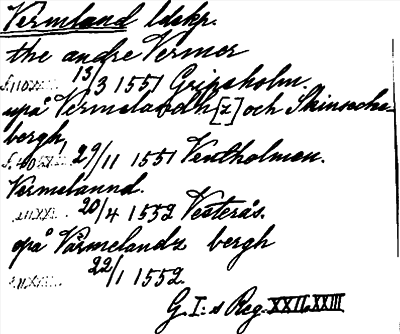 Vermland ldskp.
the andre Vermer
13/3 1551 Gripsholm.
upå Vermelandh [z] och Skinsecka-
bergh,
29/11 1551 Ventholmen.
Vermelannd.
20/4 1552 Vesterås.
opå Värmelandz bergh
22/1 1552.
G. I:s Reg. XXII, XXIII